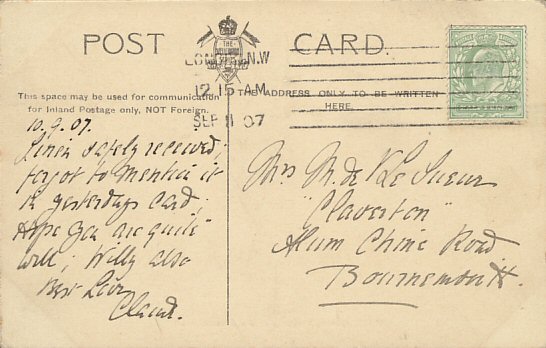 POST CARD.
THE
LONDON N.W
12.15 AM
SEP 11 07
This space may be used for communication
for Inland Postage only, NOT Foreign.
THE ADDRESS ONLY TO BE WRITTEN
HERE.
10.9.07.
Linen safely received.
forgot to mention it
in yesterdays card.
Hope you are quite
well; Willy also
Best Love
Claud.
Mrs M. de K Le Sueur
"Claverton"
Alum Chine Road
Bournemouth